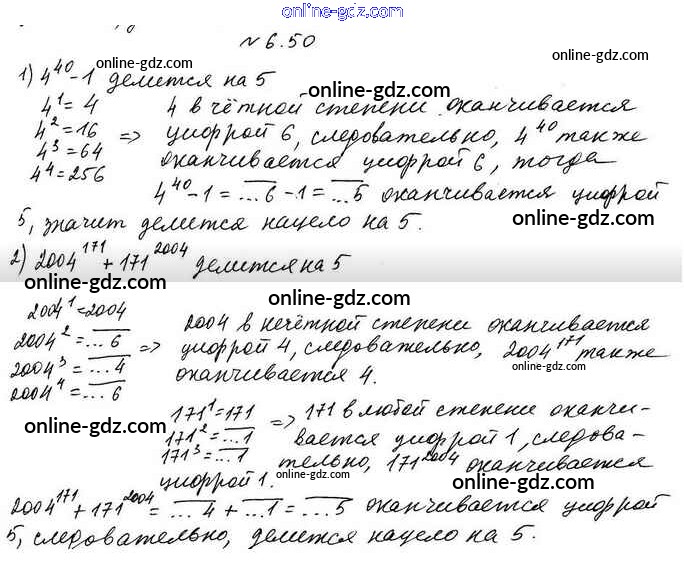 online-gdz.com
№6.50
online-gdz.com
1) 4^40 - 1 делится на 5
online-gdz.com
4^1 = 4
4^2 = 16
4^3 = 64
4^4 = 256
=> 4 в чётной степени оканчивается
цифрой 6, следовательно, 4^40 также
оканчивается цифрой 6, тогда
online-gdz.com
online-gdz.com
online-gdz.com
4^40 - 1 = ...6 - 1 = ...5 оканчивается цифрой
5, значит делится нацело на 5.
online-gdz.com
2) 2004^171 + 171^2004 делится на 5
online-gdz.com
online-gdz.com
2004^1 = 2004
2004^2 = ...6
2004^3 = ...4
2004^4 = ...6
=> 2004 в нечётной степени оканчивается
цифрой 4, следовательно, 2004^171 также
оканчивается 4.
online-gdz.com
online-gdz.com
online-gdz.com
171^1 = 171
171^2 = ...1
171^3 = ...1
=> 171 в любой степени оканчи-
вается цифрой 1, следова-
тельно, 171^2004 оканчивается
цифрой 1.
online-gdz.com
online-gdz.com
online-gdz.com
2004^171 + 171^2004 = ...4 + ...1 = ...5 оканчивается цифрой
5, следовательно, делится нацело на 5.
online-gdz.com
online-gdz.com